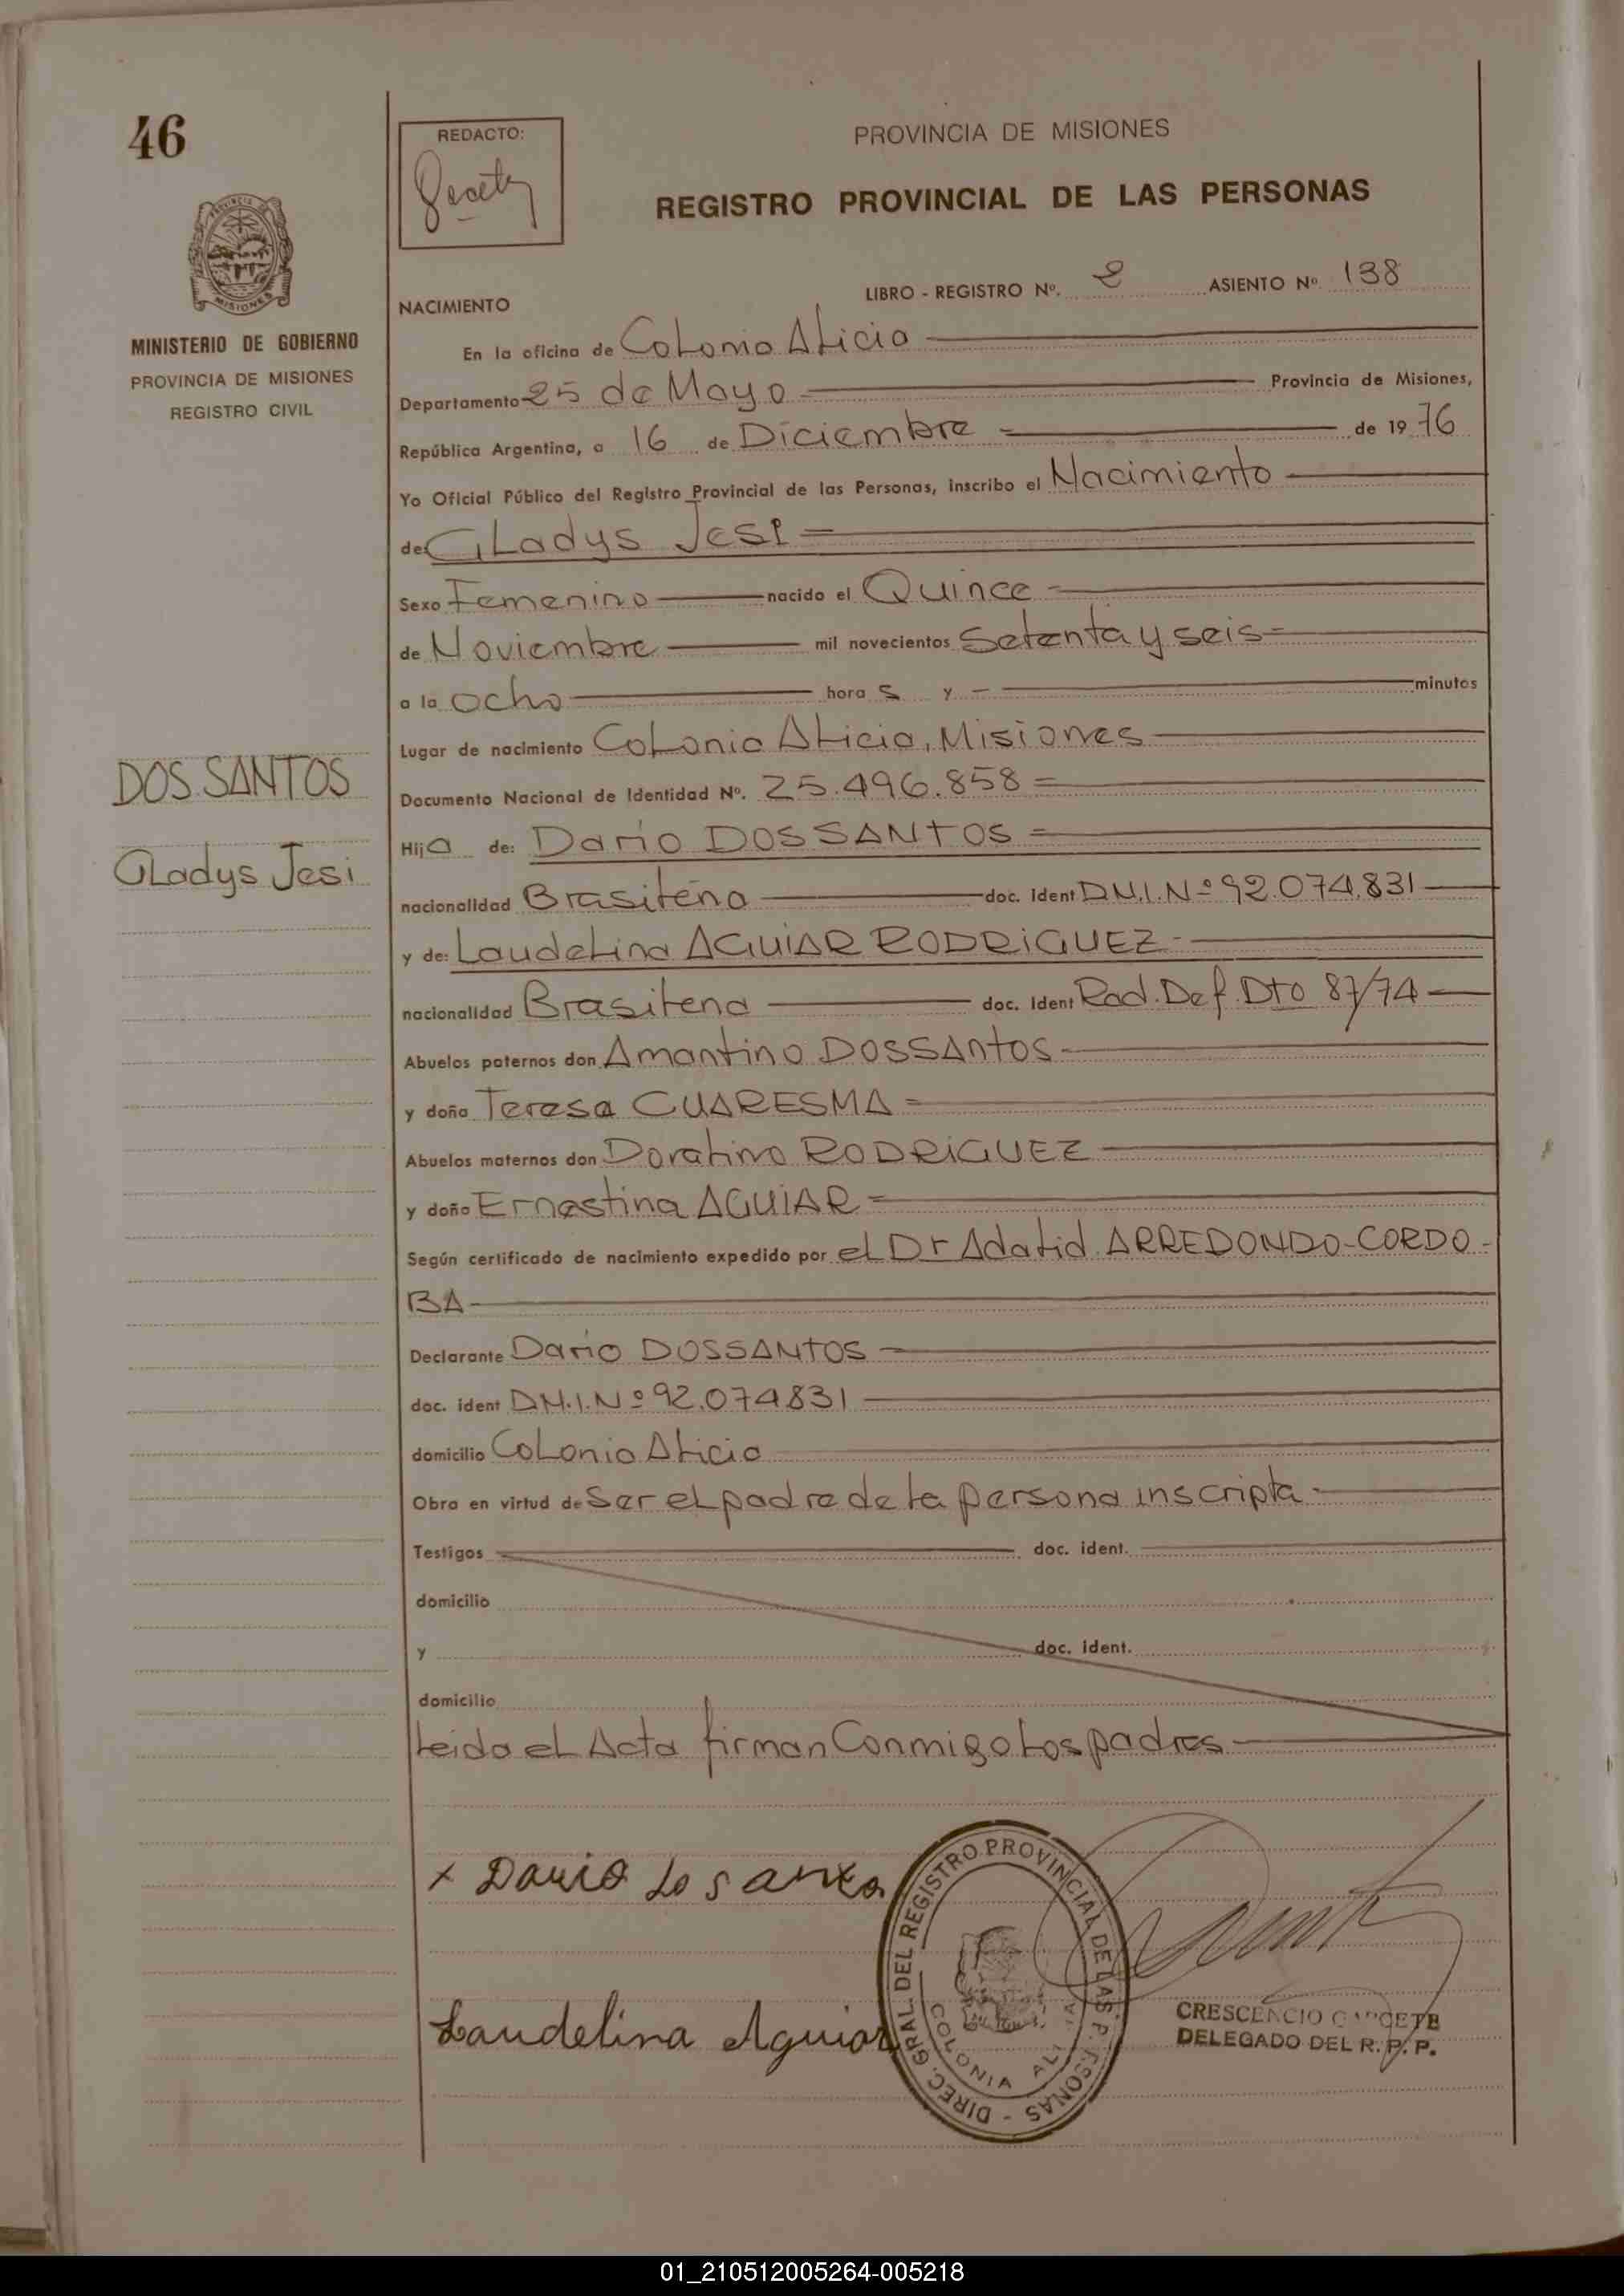 46
REDACTO:
PROVINCIA DE MISIONES
REGISTRO PROVINCIAL DE LAS PERSONAS
MISIONES
MINISTERIO DE GOBIERNO
PROVINCIA DE MISIONES
REGISTRO CIVIL
NACIMIENTO
LIBRO - REGISTRO Nº. 2 ASIENTO Nº 138
En la oficina de Colonia Alicia
Departamento 25 de Mayo Provincia de Misiones,
República Argentina, a 16 de Diciembre = de 19 76
Yo Oficial Público del Registro Provincial de las Personas, inscribo el Nacimiento
de: Gladys Jesi =
Sexo Femenino nacido el Quince =
de Noviembre mil novecientos Setenta y seis =
a la ocho hora s y - minutos
Lugar de nacimiento Colonia Alicia, Misiones
Documento Nacional de Identidad Nº. 25.496.858 =
DOS SANTOS
Gladys Jesi
Hij a de: Dario DOS SANTOS =
nacionalidad Brasileña doc. ident D.N.I. Nº 92.074.831
y de: Laudelina AGUIAR RODRIGUEZ -
nacionalidad Brasilena doc. ident Rad. Def. Dto 87/74
Abuelos paternos don Amantino DOSSANTOS
y doña Teresa CUARESMA =
Abuelos maternos don Doralino RODRIGUEZ
y doña Ernestina AGUIAR =
Según certificado de nacimiento expedido por el Dr Adalid ARREDONDO-CORDO-
BA
Declarante Dario DOSSANTOS
doc. ident D.N.I. Nº 92.074831
domicilio Colonia Alicia
Obra en virtud de Ser el padre de la persona inscripta
Testigos doc. ident.
domicilio
y doc. ident.
domicilio
Leida el Acta firman Conmigo los padres
x Dario do santos
Laudelina Aguiar
DIREC. GRAL. DEL REGISTRO PROVINCIAL DE LAS PERSONAS -
COLONIA ALICIA
CRESCENCIO GARCETE
DELEGADO DEL R. P. P.
01_210512005264-005218